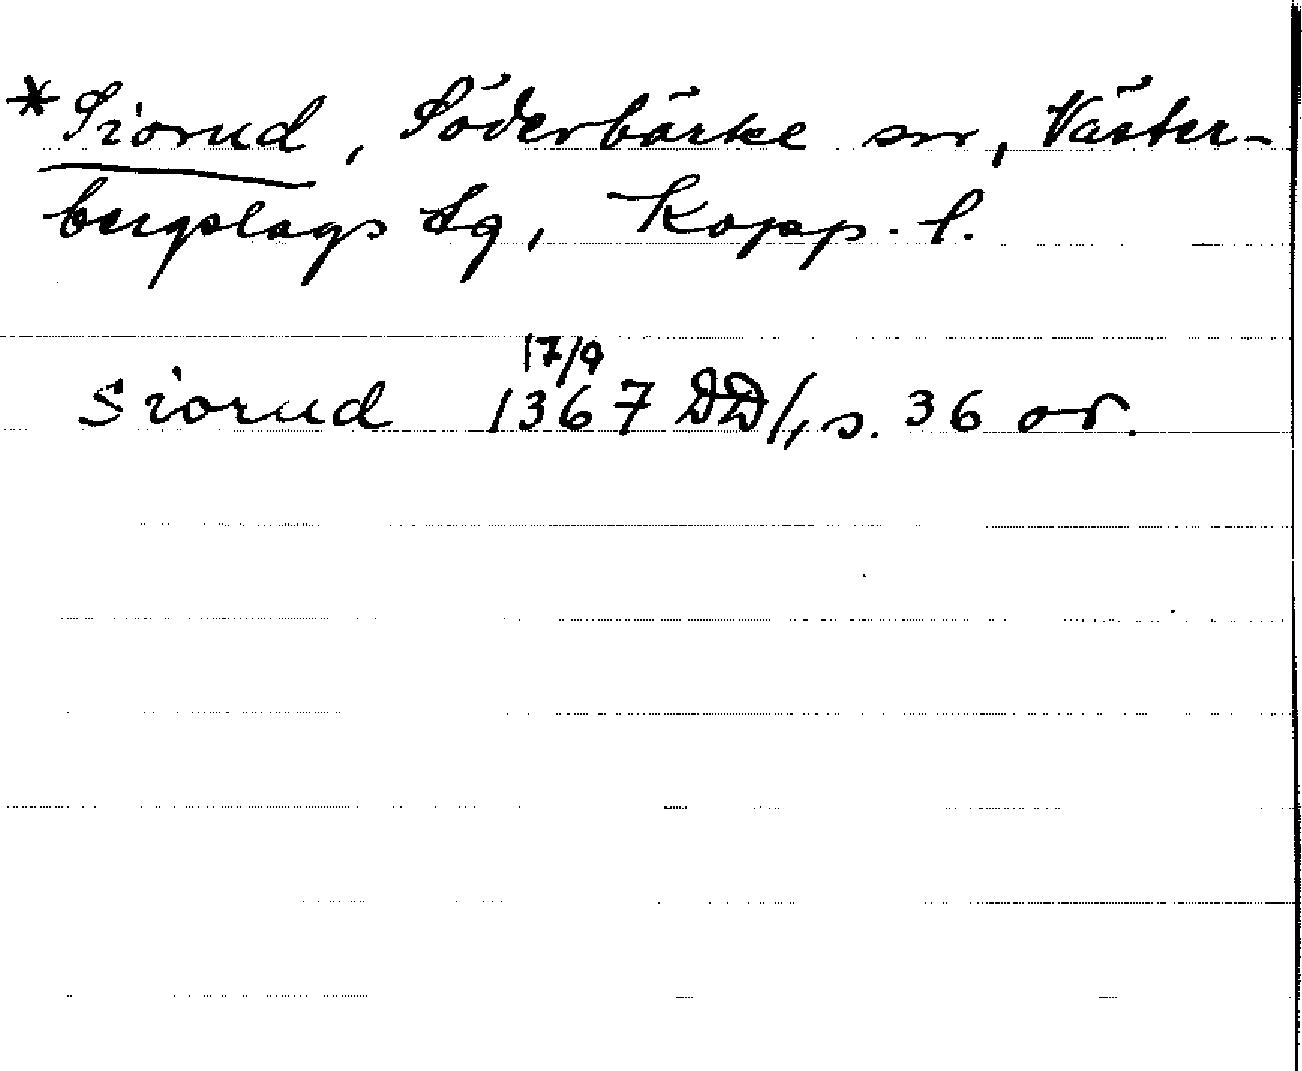 *Siorud, Söderbärke sn, Väster-
bergslags tg, Kopp. l.
17/9
siorud 1367 DD/, s. 36 or.